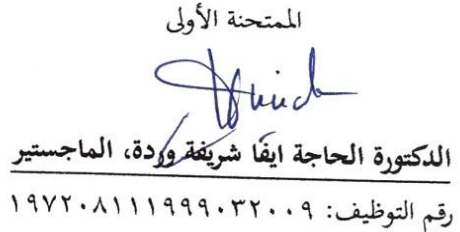 الممتحنة الأولى
الدكتورة الحاجة ايفا شريفة وردة، الماجستير
رقم التوظيف: ١٩٧٢٠٨١١١٩٩٩٠٣٢٠٠٩